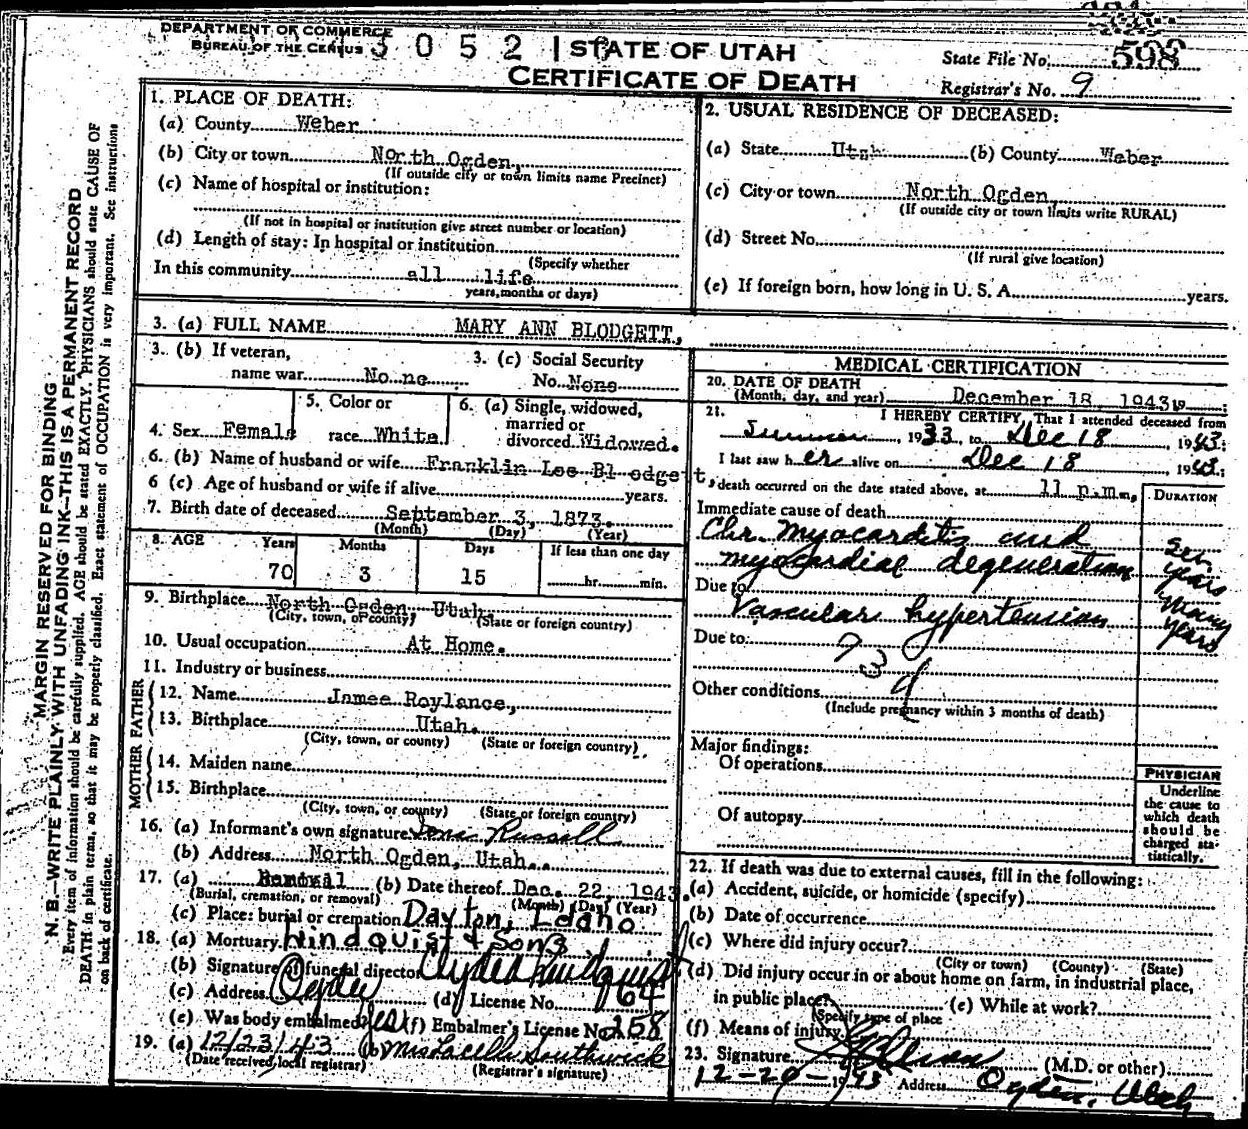 DEPARTMENT OF COMMERCE
BUREAU OF THE CENSUS
3052
STATE OF UTAH
CERTIFICATE OF DEATH
State File No. 598
Registrar's No. 9
MARGIN RESERVED FOR BINDING
N. B.—WRITE PLAINLY WITH UNFADING INK—THIS IS A PERMANENT RECORD
Every item of information should be carefully supplied. AGE should be stated EXACTLY. PHYSICIANS should state CAUSE OF
DEATH in plain terms, so that it may be properly classified. Exact statement of OCCUPATION is very important. See instructions
on back of certificate.
1. PLACE OF DEATH:
(a) County Weber
(b) City or town North Ogden,
(If outside city or town limits name Precinct)
(c) Name of hospital or institution:
(If not in hospital or institution give street number or location)
(d) Length of stay: In hospital or institution
(Specify whether
In this community all life
years, months or days)
2. USUAL RESIDENCE OF DECEASED:
(a) State Utah (b) County Weber
(c) City or town North Ogden,
(If outside city or town limits write RURAL)
(d) Street No.
(If rural give location)
(e) If foreign born, how long in U. S. A. years.
3. (a) FULL NAME MARY ANN BLODGETT,
3. (b) If veteran,
name war No ne
3. (c) Social Security
No. None
4. Sex Female
5. Color or
race White
6. (a) Single, widowed,
married or
divorced Widowed.
6. (b) Name of husband or wife Franklin Lee Bl odgett,
6 (c) Age of husband or wife if alive years.
7. Birth date of deceased September 3, 1873.
(Month) (Day) (Year)
8. AGE Years Months Days If less than one day
70 3 15 hr. min.
9. Birthplace North Ogden, Utah.
(City, town, or county) (State or foreign country)
10. Usual occupation At Home.
11. Industry or business
FATHER
12. Name James Roylance,
13. Birthplace Utah.
(City, town, or county) (State or foreign country)
MOTHER
14. Maiden name
15. Birthplace
(City, town, or county) (State or foreign country)
16. (a) Informant's own signature Russell
(b) Address North Ogden, Utah.
17. (a) Removal (b) Date thereof Dec. 22, 1943.
(Burial, cremation, or removal) (Month) (Day) (Year)
(c) Place: burial or cremation Dayton, Idaho
18. (a) Mortuary Lindquist & Sons
(b) Signature of funeral director Clyde Lindquist
(c) Address Ogden (d) License No. 164
(e) Was body embalmed? Yes (f) Embalmer's License No. 258
19. (a) 12/23/43 (b) Mrs Southwick
(Date received local registrar) (Registrar's signature)
MEDICAL CERTIFICATION
20. DATE OF DEATH
(Month, day, and year) December 18, 1943 19 ;
21. I HEREBY CERTIFY, That I attended deceased from
Summer, 1933, to Dec 18, 1943;
I last saw her alive on Dec 18, 1943;
death occurred on the date stated above, at 11 p.m.
DURATION
Immediate cause of death
Chr. Myocarditis and
myocardial degeneration
Sev. years
Due to
Vascular hypertension
Many years
Due to
Other conditions
(Include pregnancy within 3 months of death)
Major findings:
Of operations
Of autopsy
PHYSICIAN
Underline
the cause to
which death
should be
charged sta-
tistically.
22. If death was due to external causes, fill in the following:
(a) Accident, suicide, or homicide (specify)
(b) Date of occurrence
(c) Where did injury occur?
(City or town) (County) (State)
(d) Did injury occur in or about home on farm, in industrial place,
in public place? (e) While at work?
(Specify type of place
(f) Means of injury
23. Signature (M.D. or other)
12-20-1943 Address Ogden, Utah